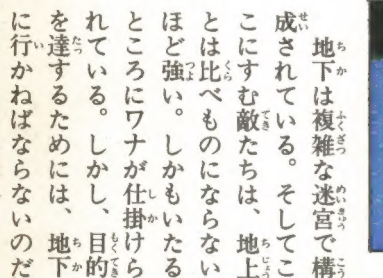 地下は複雑な迷宮で構
成されている。そしてこ
こにすむ敵たちは、地上
とは比べものにならない
ほど強い。しかもいたる
ところにワナが仕掛けら
れている。しかし、目的
を達するためには、地下
に行かねばならないのだ